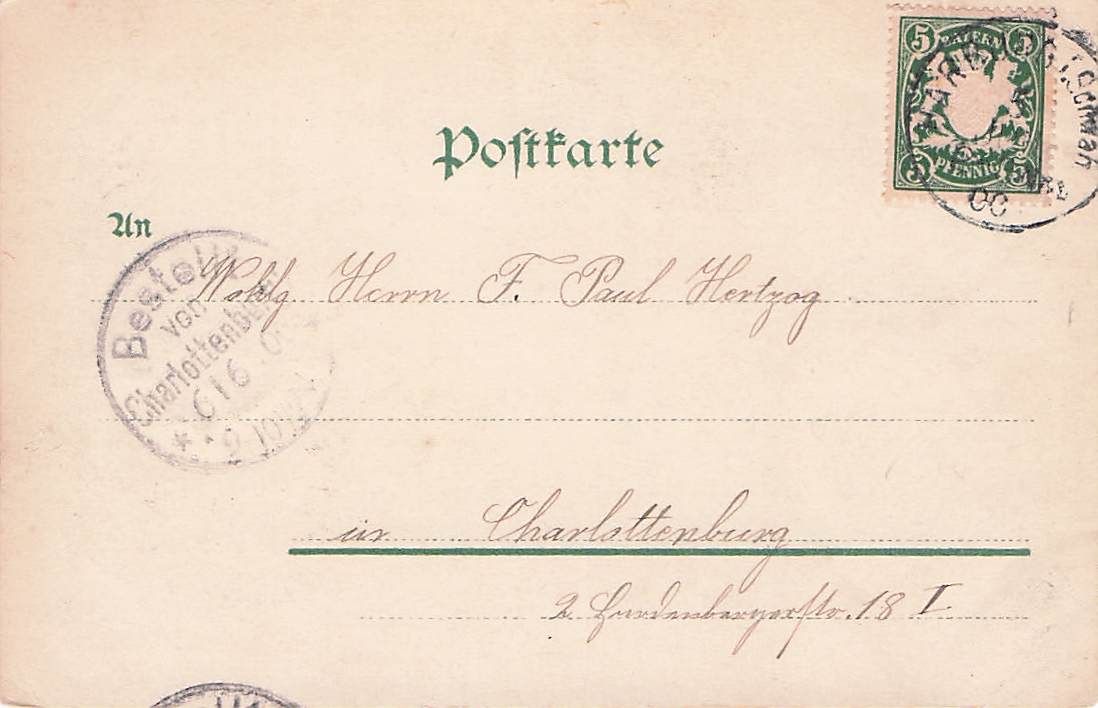 5 BAYERN 5
5 PFENNIG 5
HARBURG (Schwab
00
Postkarte
An
Wohlg Herrn F. Paul Hertzog
Bestellt
von
Charlottenburg
6 6
in Charlottenburg
2. Hardenbergerstr. 18 I